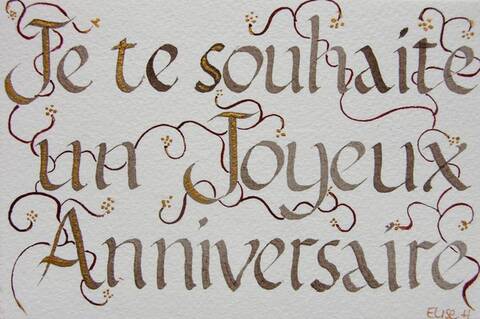 Je te souhaite
un Joyeux
Anniversaire
Elise H